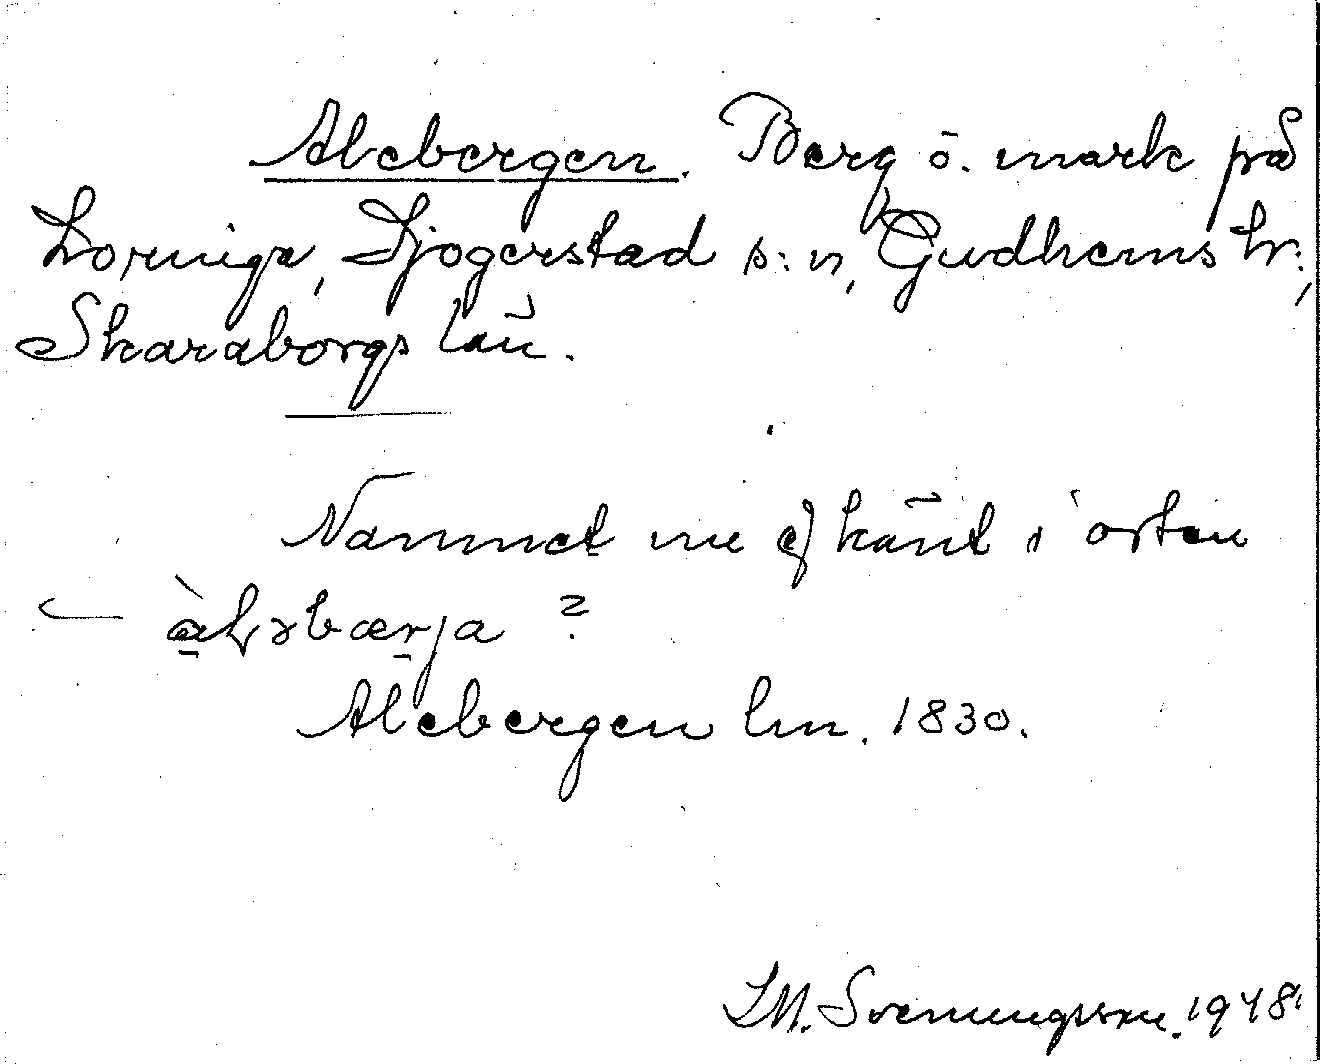 Alebergen. Berg ö. mark på
Lorniga, Sjogerstad s:n, Gudhems hr:,
Skaraborgs län.
Namnet nu ej känt i orten
Alebergen lm. 1830.
I.M. Svenungsson. 1948